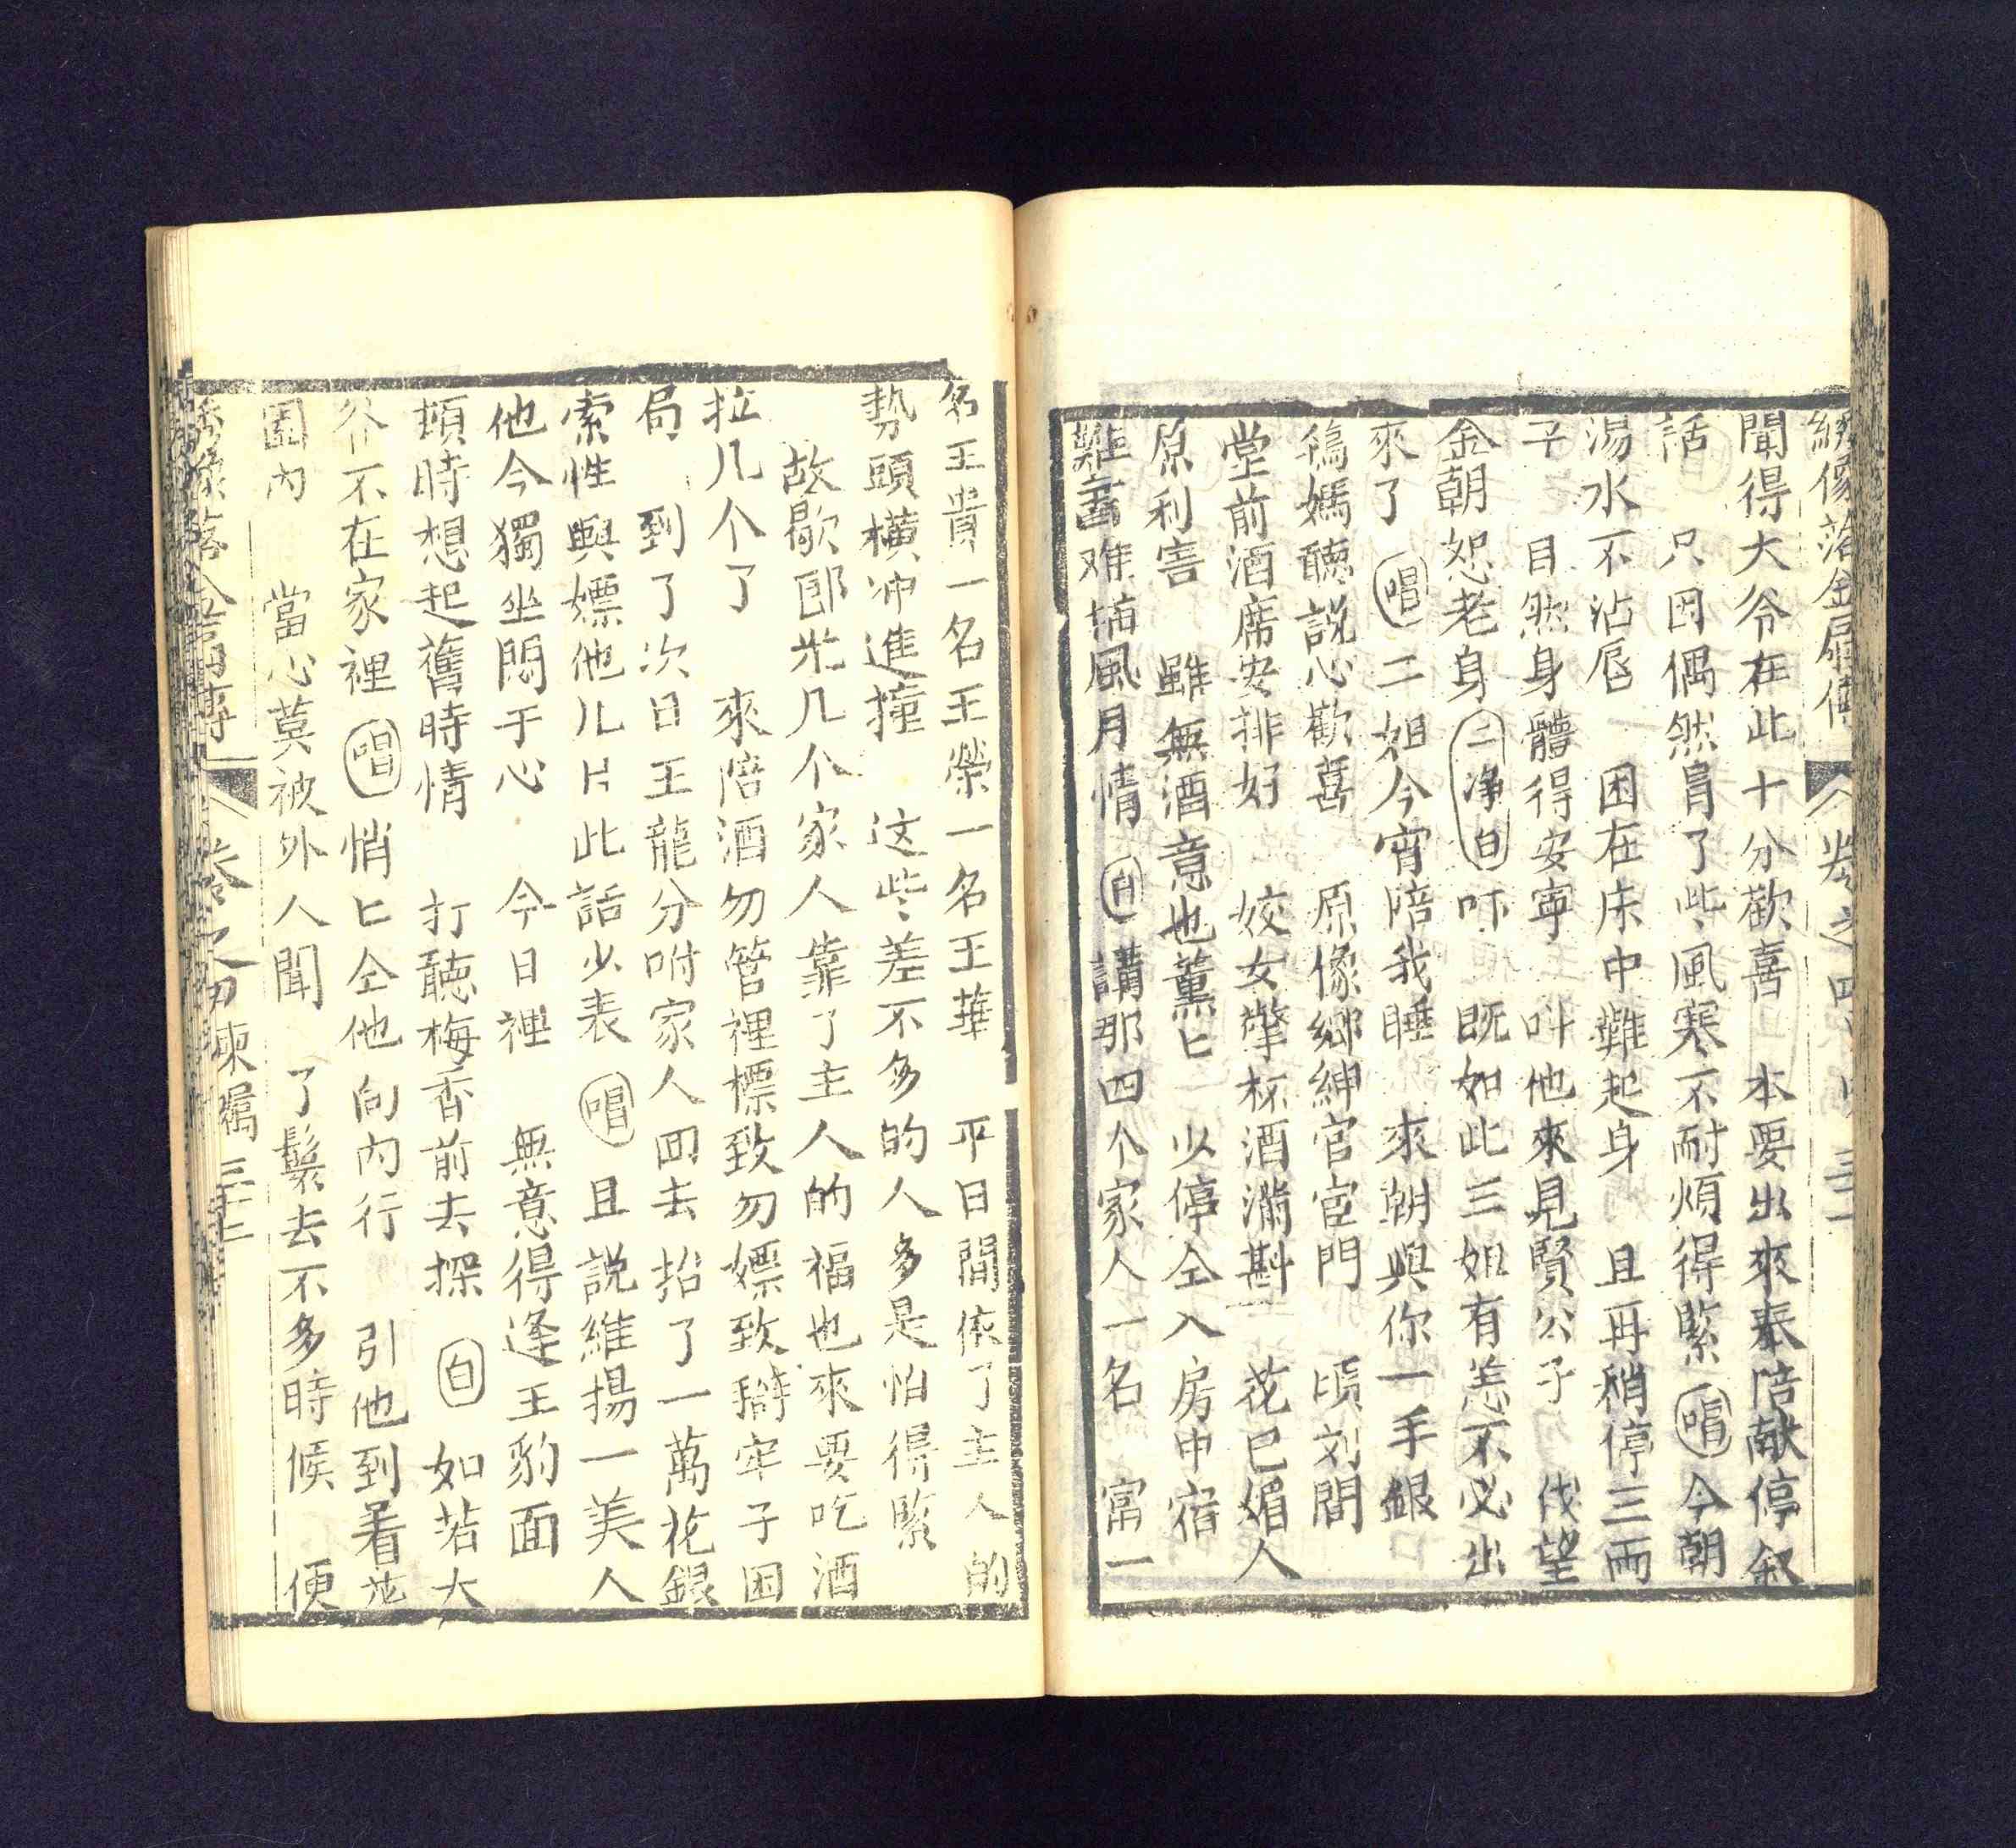 繡像落金扇傳 卷之四 三十一
聞得大爷在此十分歡喜 本要出來奉陪献停叙
話 只因偶然冐了些風寒不耐煩得緊 唱 今朝
湯水不沾唇 困在床中難起身 且再稍停三両
子 目然身體得安寧 呌他來見賢公子 伐望
金朝恕老身 二净白 吓 既如此三姐有恙不必出
來了 唱 二姐今宵陪我睡 來朝與你一手銀
鴇媽聽説心歡喜 原像鄉紳官宦門 頃刻間
堂前酒席安排好 姣女擎杯酒滿斟 花已媚人
原利害 雖無酒意也薰匕 少停仝入房中宿
難畵难描風月情 白 講那四个家人一名 富一
名王貴一名王榮一名王華 平日間依了主人的
勢頭橫冲進撞 这些差不多的人多是怕得緊
故歇郎光几个家人靠了主人的福也來要吃酒
拉几个了 來陪酒勿管裡標致勿嫖致 牢子困
局 到了次日王龍分咐家人囬去抬了一萬花銀
索性與嫖他儿日此話少表 唱 且説維揚一美人
他今獨坐悶于心 今日裡 無意得逢王豹面
頓時想起舊時情 打聽梅香前去探 白 如若大
爷不在家裡 唱 悄匕仝他向內行 引他到着花
園內 當心莫被外人聞 了鬟去不多時候 便
繡像落金扇傳 卷之四 陳嘱 三十二